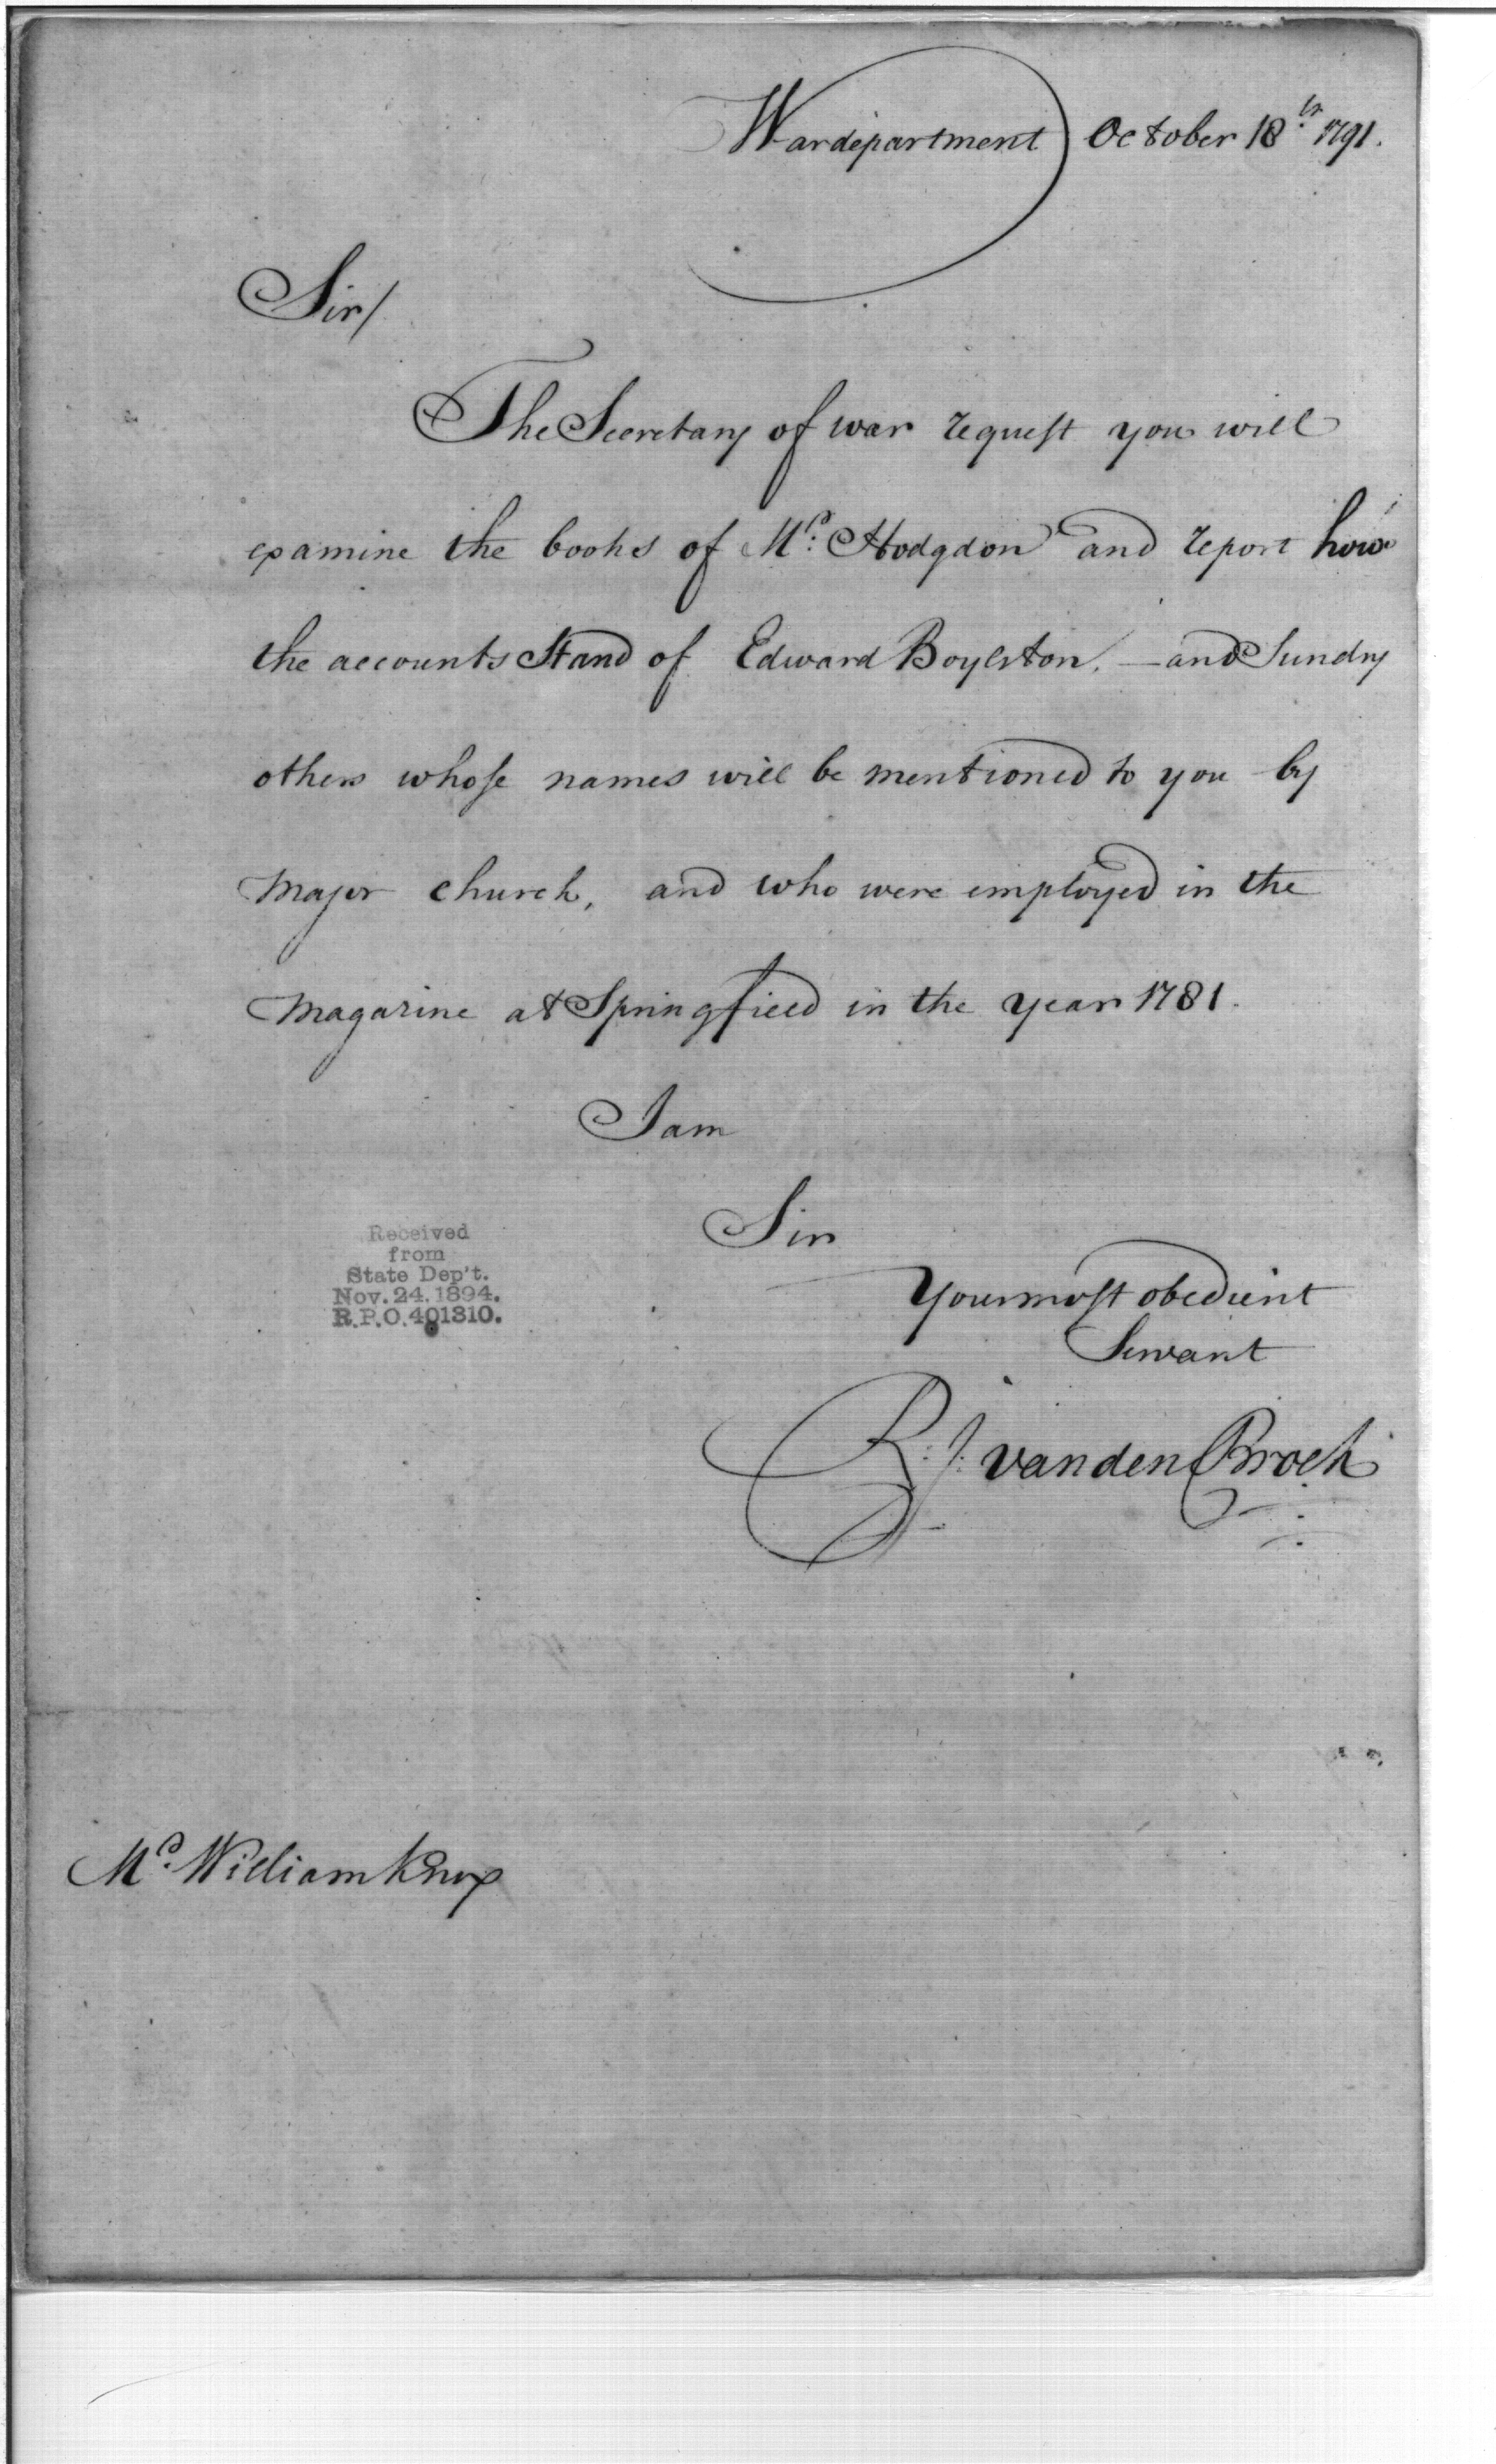 War department October 18th 1791.
Sir/
The Secretary of war request you will
examine the books of Mr: Hodgdon and report how
the accounts Stand of Edward Boylston, — and Sundry
others whose names will be mentioned to you by
Major church, and who were employed in the
Magazine at Springfield in the year 1781.
I am
Sir
Your most obedient
Servant
R: J: vanden Broek
Received
from
State Dep't.
Nov. 24. 1894.
R.P.O. 401310.
Mr. William Knox